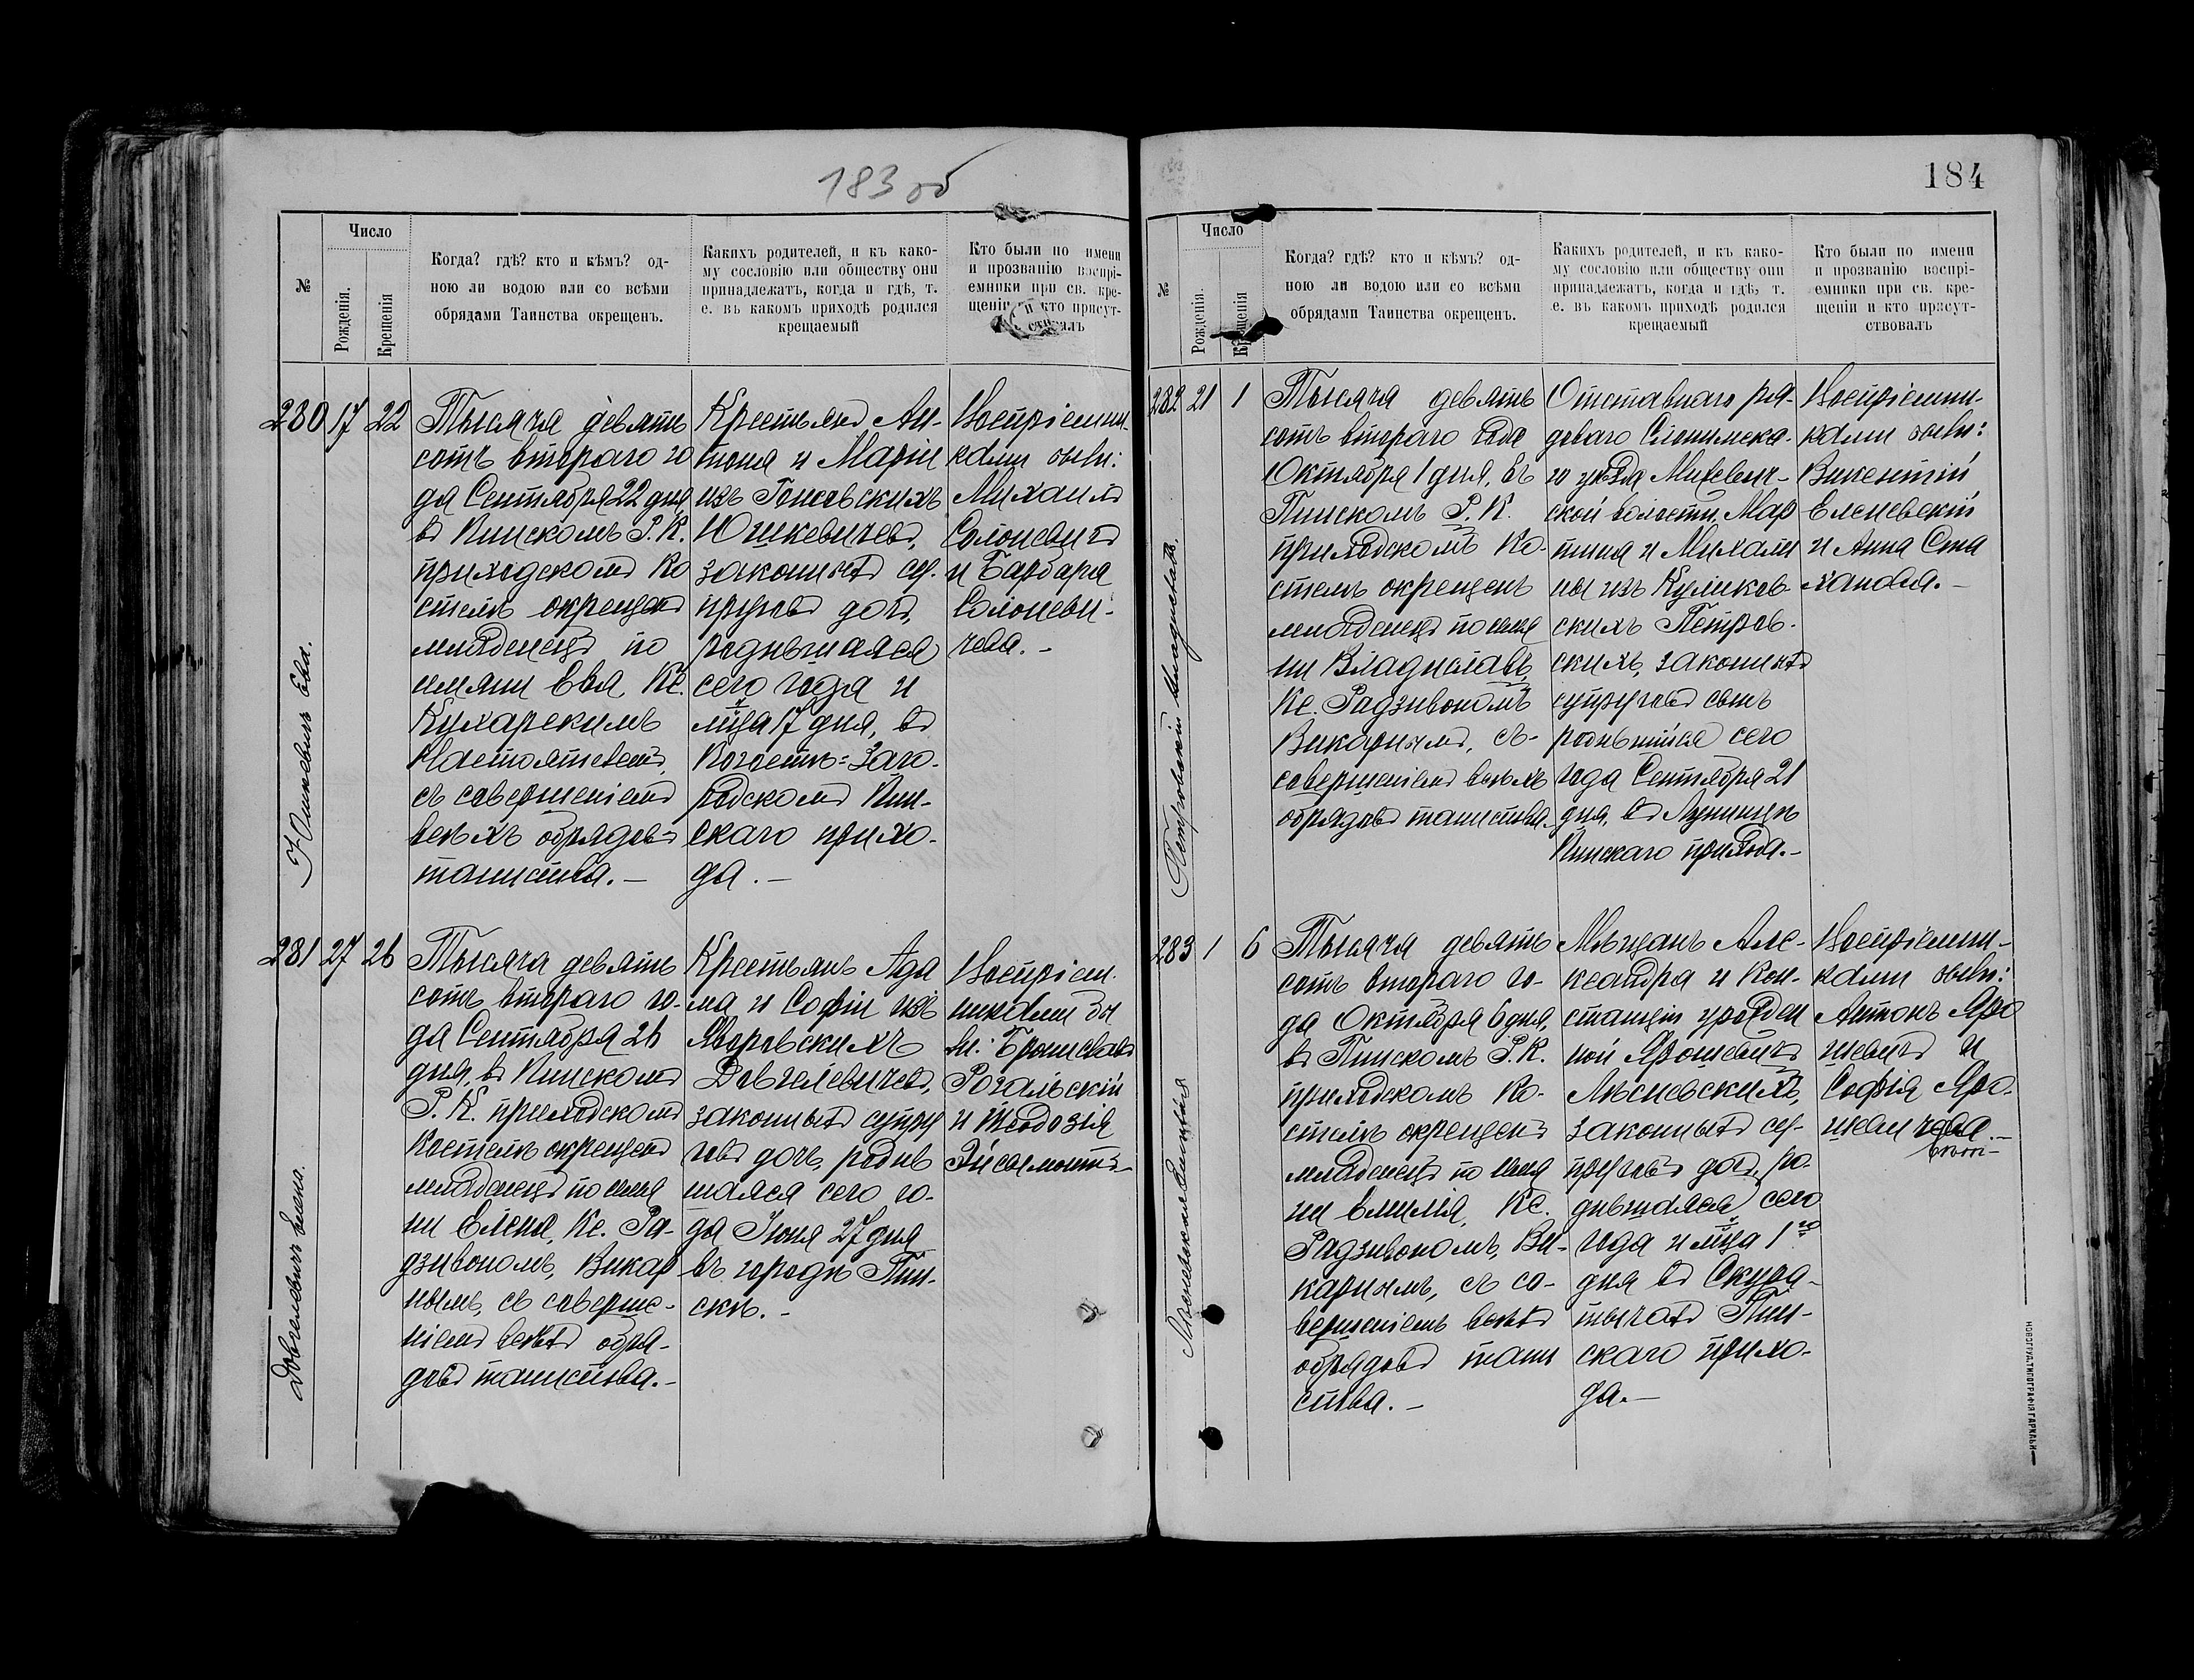 183 об
№
Число
Рожденія.
Крещенія
Когда? гдѣ? кто и кѣмъ? од-
ною ли водою или со всѣми
обрядами Таинства окрещенъ.
Какихъ родителей, и къ како-
му сословію или обществу они
принадлежатъ, когда и гдѣ, т.
е. въ какомъ приходѣ родился
крещаемый
Кто были по имени
и прозванію воспрі-
емники при св. кре-
щеніи и кто присут-
280 17 22
Юшкевичъ Ева.
Тысяча девять
сотъ второго го
да Сентября 22 дня,
въ Пинскомъ Р. К.
приходскомъ ко
стелѣ окрещенъ
младенецъ по
имени Ева, Кс.
Кухарскимъ
Настоятелемъ,
съ совершеніемъ
всѣхъ обрядовъ
таинства. –
Крестьянъ Ан-
тона и Маріи
изъ
Юшкевичевъ,
законныхъ су-
пруговъ дочь,
родившаяся
сего года и
мца 17 дня, въ
Погостѣ-Заго-
родскомъ Пин-
скаго прихо-
да. –
Воспріемни-
ками были:
Михаилъ
Солоневичъ
и Барбара
Солоневи-
чева. –
281 27 26
Довгелевичъ Елена.
Тысяча девять
сотъ второго го-
да Сентября 26
дня, въ Пинскомъ
Р. К. приходскомъ
костелѣ окрещенъ
младенецъ по име
ни Елена, Кс. Ра-
дзивономъ, Викар
нымъ, съ соверше-
ніемъ всѣхъ обря-
довъ таинства. –
Крестьянъ Ада
ма и Софіи изъ
Яворовскихъ
Довгелевичевъ,
законныхъ супру
говъ дочь, родив
шаяся сего го-
да Іюня 27 дня
въ городѣ Пин-
скѣ. –
Воспріем-
никами бы
ли: Брониславъ
Рогальскій
и Теодозія
184
№
Число
Рожденія.
Крещенія
Когда? гдѣ? кто и кѣмъ? од-
ною ли водою или со всѣми
обрядами Таинства окрещенъ.
Какихъ родителей, и къ како-
му сословію или обществу они
принадлежатъ, когда и гдѣ, т.
е. въ какомъ приходѣ родился
крещаемый
Кто были по имени
и прозванію воспрі-
емники при св. кре-
щеніи и кто присут-
ствовалъ
282 21 1
Петровскій Владиславъ.
Тысяча девять
сотъ второго года
Октября 1 дня, въ
Пинскомъ Р. К.
приходскомъ ко-
стелѣ окрещенъ
младенецъ по име
ни Владиславъ,
Кс. Радзивономъ
Викарнымъ, съ
совершеніемъ всѣхъ
обрядовъ таинства. –
Отставнаго ря-
доваго Слонимска-
го уѣзда,
ской волости, Мар
тина и Михали
ны изъ Куликов-
скихъ Петров-
скихъ, законныхъ
супруговъ сынъ
родившійся сего
года Сентября 21
дня, въ Лунинцѣ
Пинскаго прихода. –
Воспріемни-
ками были:
Викентій
Еленевскій
и Анна Ста
ханова. –
283 1 6
Лѣсневская Емилія
Тысяча девять
сотъ второго го-
да Октября 6 дня,
въ Пинскомъ Р. К.
приходскомъ ко-
стелѣ окрещенъ
младенецъ по име
ни Емилія, Кс.
Радзивономъ, Ви-
карнымъ, съ со-
вершеніемъ всѣхъ
обрядовъ таин
ства. –
Мѣщанъ Але-
ксандра и Кон-
станціи урожден
ной Ярошевичъ
Лѣсневскихъ,
законныхъ су-
пруговъ дочь, ро-
дившаяся сего
года и мца 1го
дня въ Скура-
тычахъ Пин-
скаго прихо-
да. –
Воспріемни-
ками были:
Антонъ Яро
шевичъ и
Софія Яро-
НОВОГРУД. ТИПОГРАФІЯ ГАРКАВИ